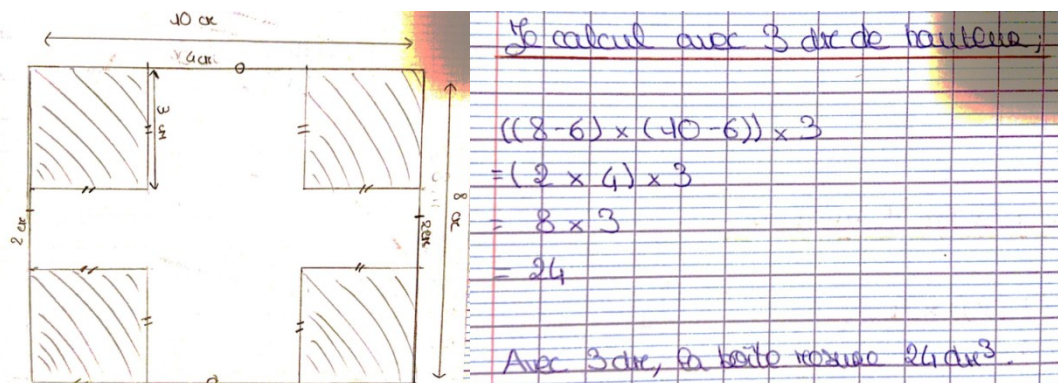 10 cm
4cm
3 cm
2 cm
2cm
8 cm
Je calcul avec 3 dm de hauteur,
((8-6) × (10-6)) × 3
= (2 × 4) × 3
= 8 × 3
= 24
Avec 3 dm, la boîte mesure 24 dm³.